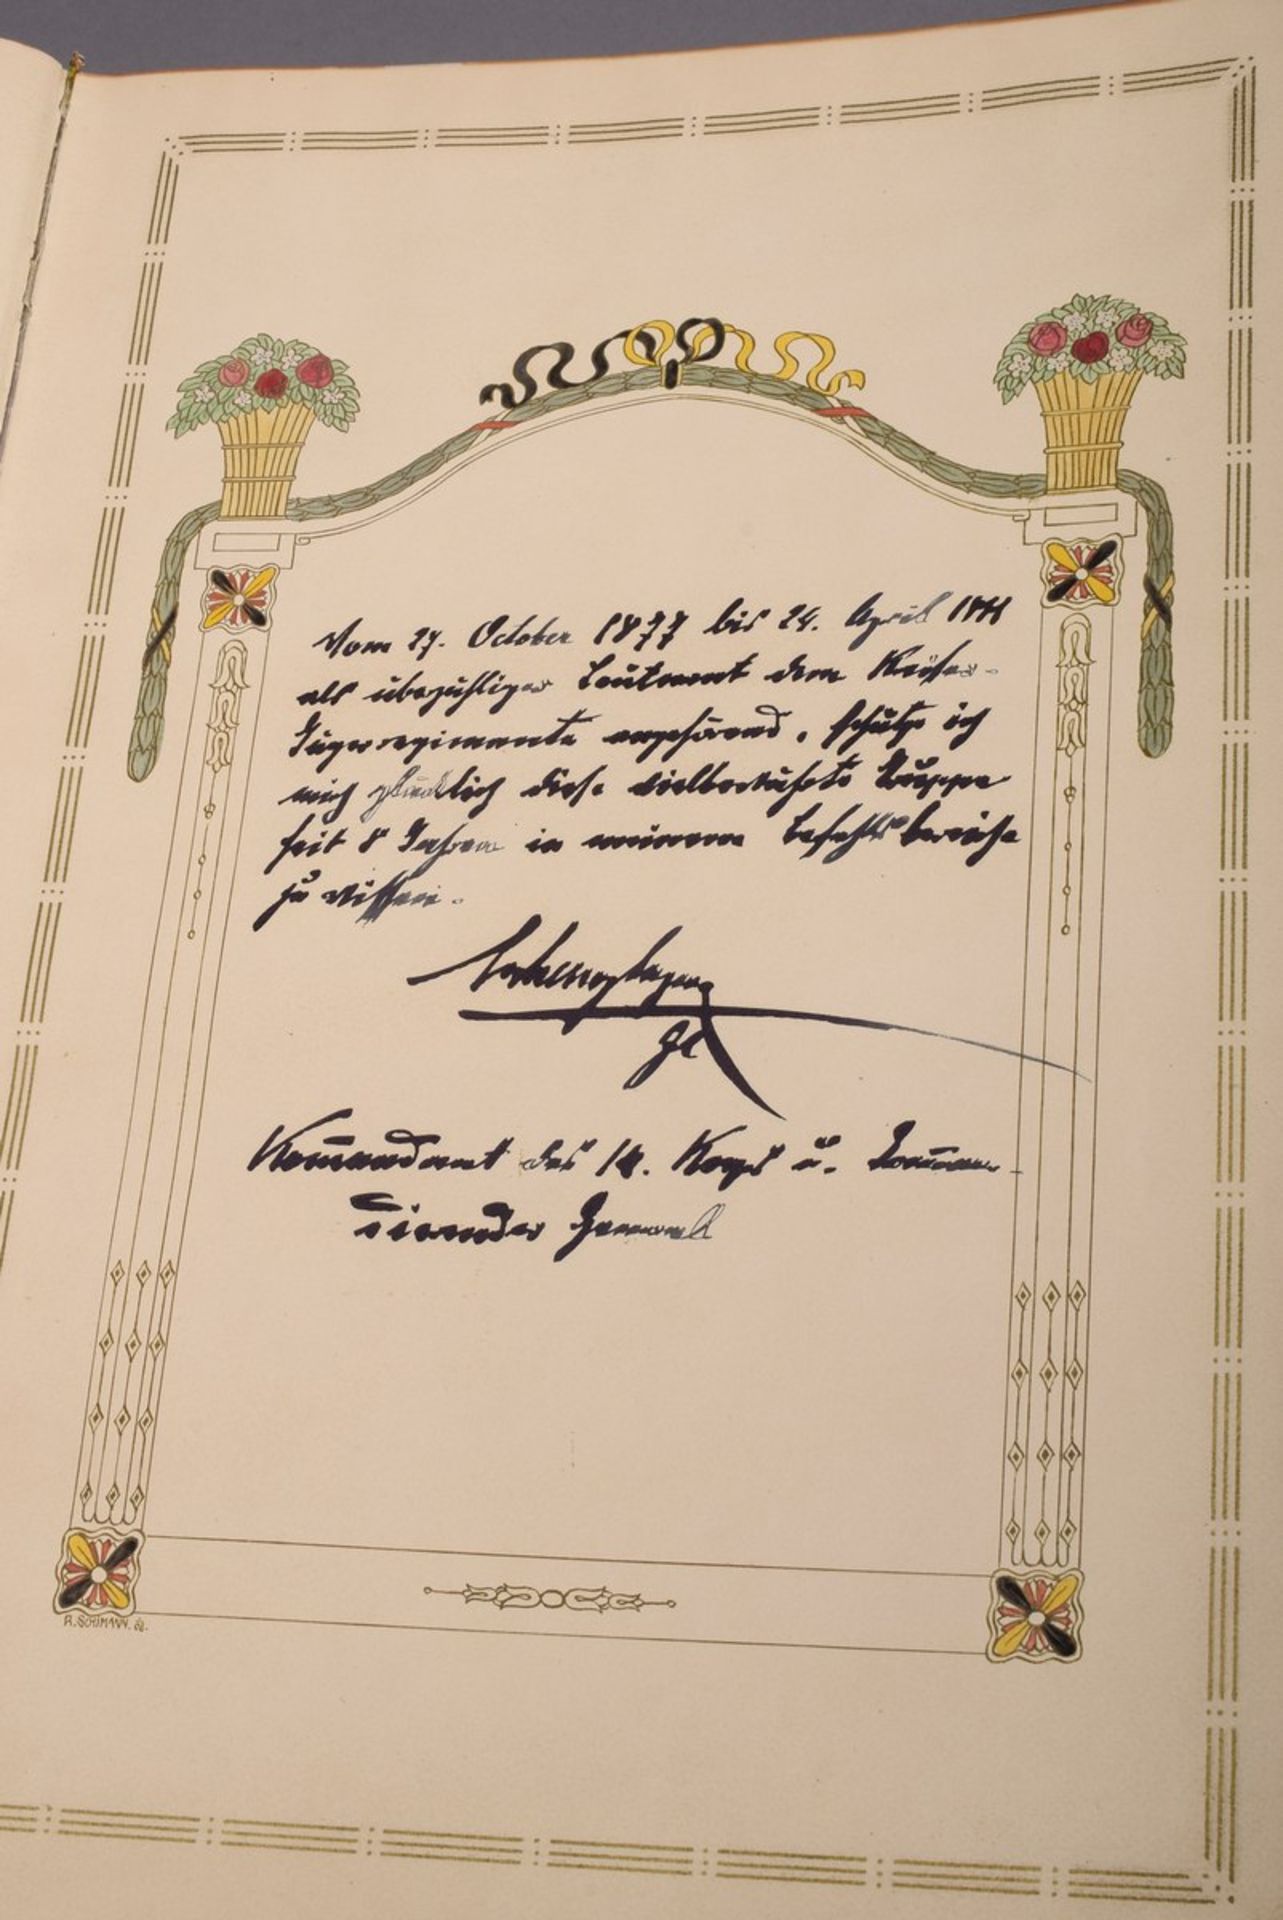 Vom 27. October 1877 bis 24. April 18
als überzähliger Leutnant dem Kaiser-
Jägerregimente angehörend, schätze ich
mich glücklich diese vielbewährte Truppe
seit 8 Jahren in meinem Befehlsbereiche
zu wissen.
Kom̄andant des 14. Korps u. kom̄an-
dirender General
R. SCHIMANN.